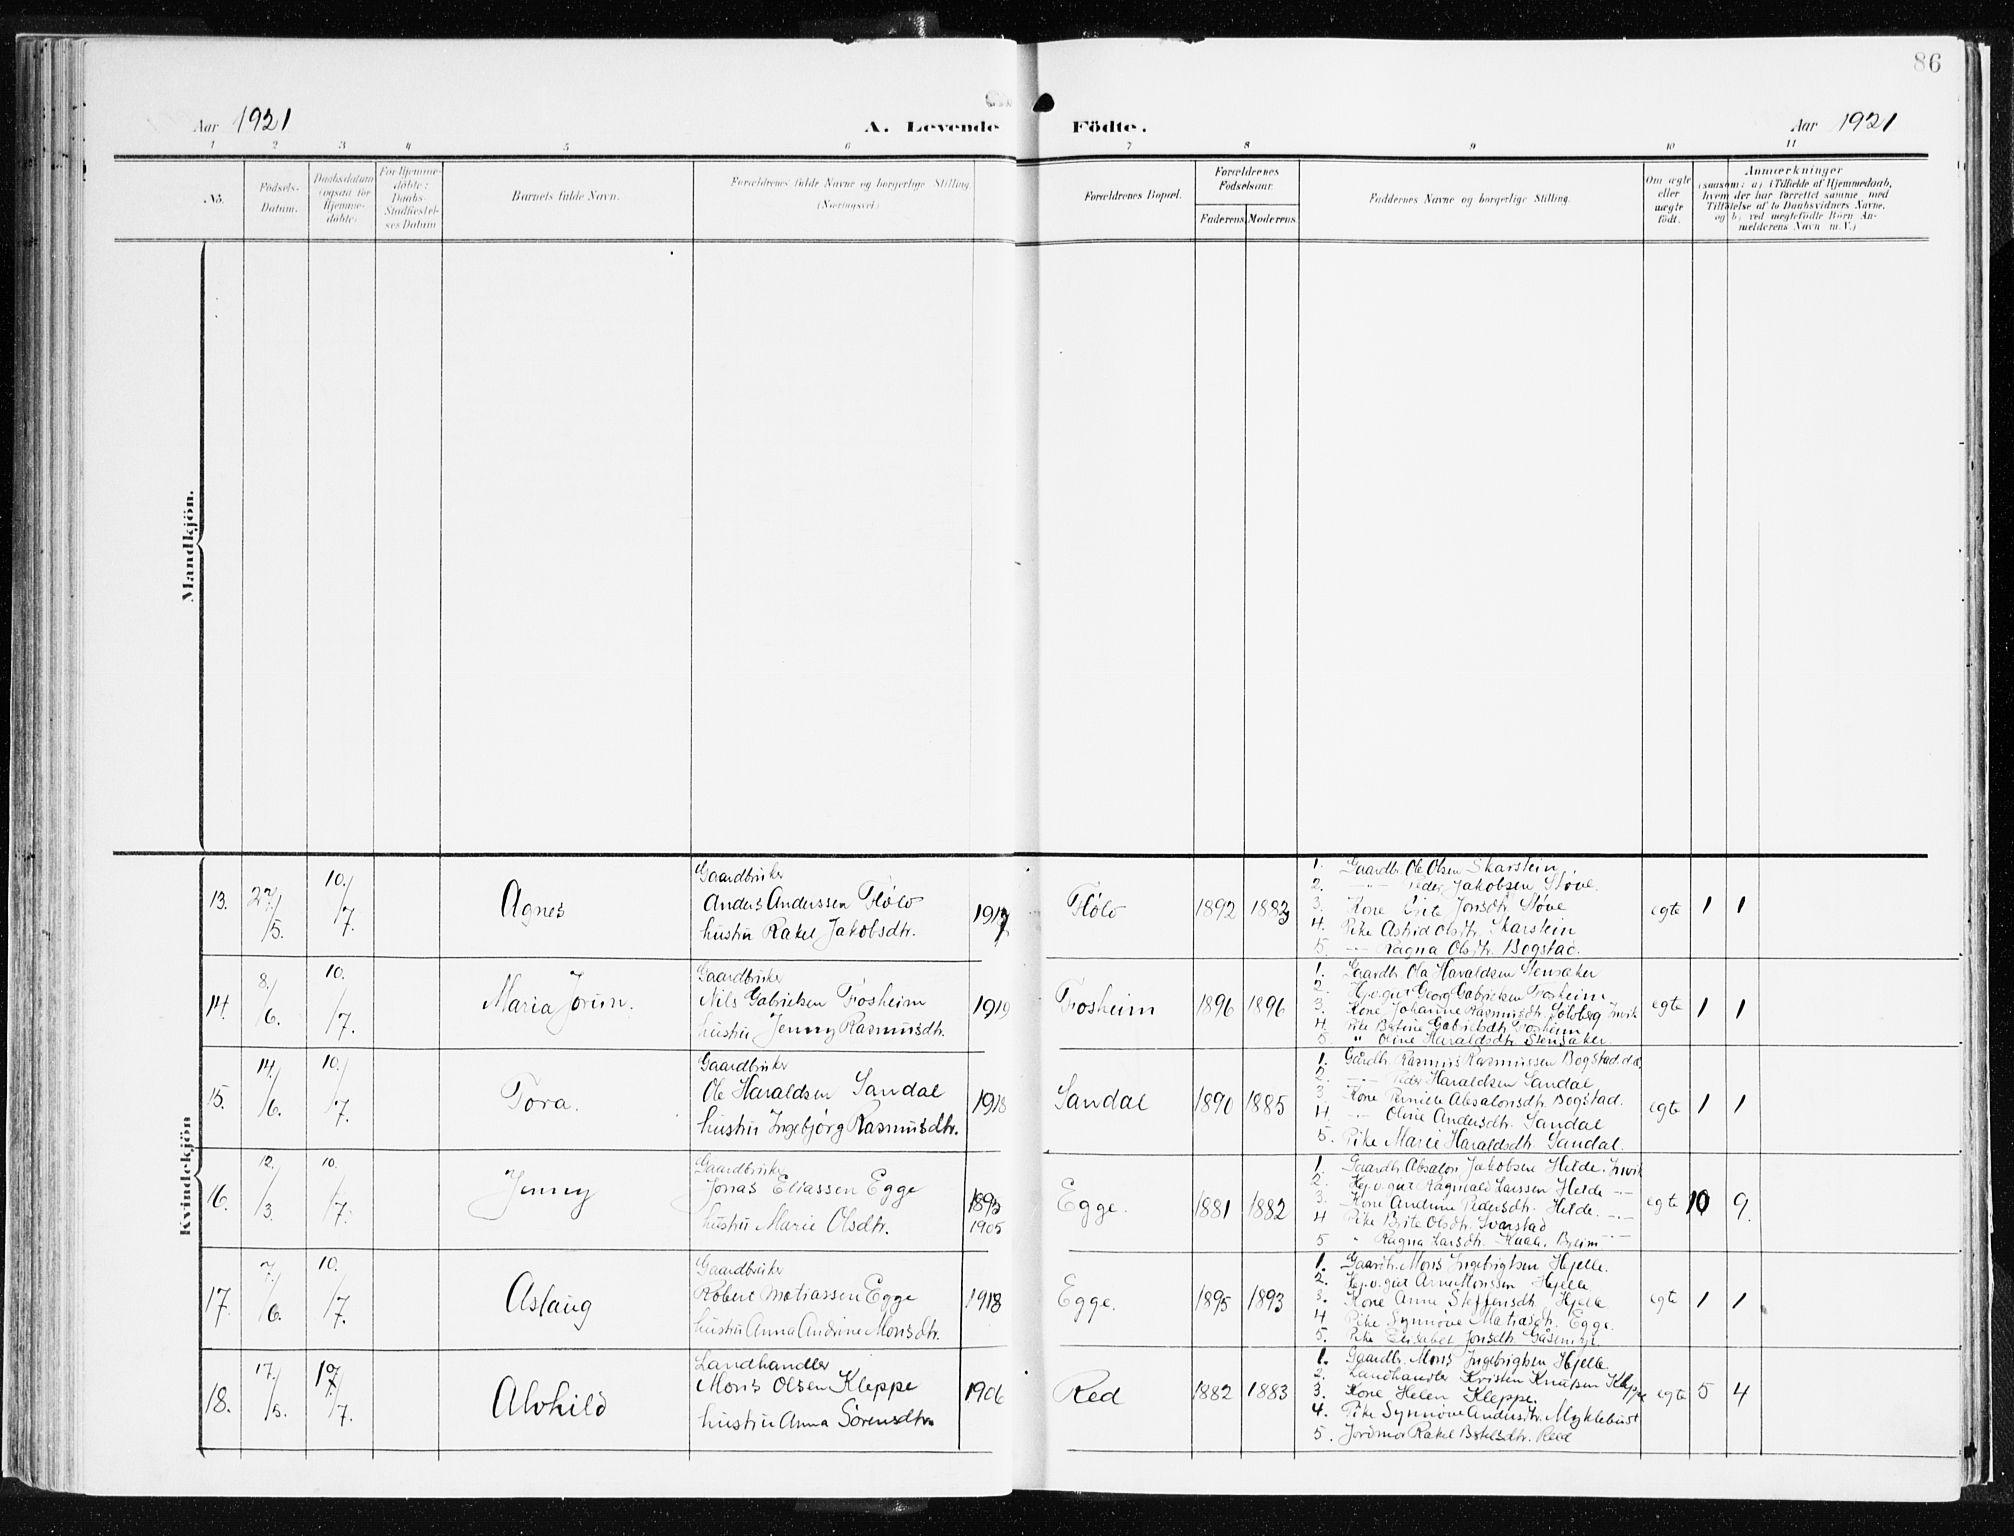 86
Aar 1921
A. Levende Födte.
Aar 1921
1 2 3 4 5 6 7 8 9 10 11
No.
Födsels-
Datum.
Daabsdatum
(ogsaa for
Hjemme-
döbte)
For Hjemme-
döbte:
Daabs-
Stadfæstel-
ses Datum
Barnets fulde Navn.
Forældrenes fulde Navne og borgerlige Stilling
(Næringsvei)
Forældrenes Bopæl.
Forældrenes
Födselsaar.
Faderens Moderens
Faddernes Navne og borgerlige Stilling.
Om ægte
eller
uægte
født.
Anmærkninger
(saasom: a) i Tilfælde af Hjemmedaab,
hvem der har forrettet samme med
Tilføielse af to Daabsvidners Navne,
og b) ved uægtefødte Börn An-
melderens Navn m.V.)
Mandkjön.
Kvindekjön
13. 27/5. 10./7. Agnes
Gaardbruker
Anders Anderssen Flölo
hustru Rakel Jakobsdtr.
1917
Flölo 1892 1883
1. Gaardbr. Ole Olsen Skarstein
2. —"— Peder Jakobsen Støve.
3. Kone Brite Jonsdtr. Støve
4. Pike Astrid Olsdtr. Skarstein
5. —"— Ragna Olsdtr. Bogstad.
egte 1 1
14. 8./6. 10./7. Maria Jorun.
Gaardbruker
Nils Gabrielsen Frosheim
hustru Jenny Rasmusdtr.
1919
Frosheim 1896 1896
1. Gaardbr. Ola Haraldsen Stensaker
2. Hj.v.gut Georg Gabrielsen Frosheim
3. Kone Johanne Rasmusdtr. Solberg Invik
4. Pike Batine Gabrielsdtr. Frosheim
5. " Oline Haraldsdtr. Stensaker.
egte 1 1
15. 14/6. 10./7. Tora.
Gaardbruker
Ole Haraldsen Sandal
hustru Ingebjörg Rasmusdtr.
1918
Sandal 1890 1885
1. Gårdbr. Rasmus Rasmussen Bogstad
2. —"— Peder Haraldsen Sandal
3. Kone Pernille Absalonsdtr. Bogstad.
4. —"— Oline Andersdtr. Sandal
5. Pike Marie Haraldsdtr. Sandal.
egte 1 1
16. 12./3. 10./7. Jenny
Gaardbruker
Jonas Eliassen Egge
hustru Marie Olsdtr.
1905
Egge. 1881 1882
1. Gaardbr. Absalon Jakobsen Hilde. Invik
2. Hj.v.gut Ragnvald Larssen Hilde —"—
3. Kone Andrine Pedersdtr. Hilde. —"—
4 Pike Brite Olsdtr. Svarstad
5 " Ragna Larsdtr. Breim
egte 10 9.
17. 7./6. 10./7. Aslaug
Gaardbruker
Robert Matiassen Egge
hustru Anna Andrine Monsdtr.
1918
Egge. 1895 1893
1. Gaardbr. Mons Ingebrigtsen Hjelle.
2. Hj.v.gut Arne Monssen Hjelle
3. Kone Anne Steffensdtr. Hjelle
4 Pike Synnöve Matiasdtr. Egge.
5. Pike Elisabet Jonsdtr. Gåsemyr.
egte 1 1
18. 17/5. 10/7. Alvhild
Landhandler
Mons Olsen Kleppe
hustru Anna Sörensdtr.
1906
Red 1882 1883
1. Gaardbr. Mons Ingebrigtsen Hjelle.
2. Landhandler Kristen Knutsen Kleppe
3. Kone Helen Kleppe.
4. Pike Synnöve Andersdtr. Myklebust
5. Jordmor Rakel Reed
egte 5 4